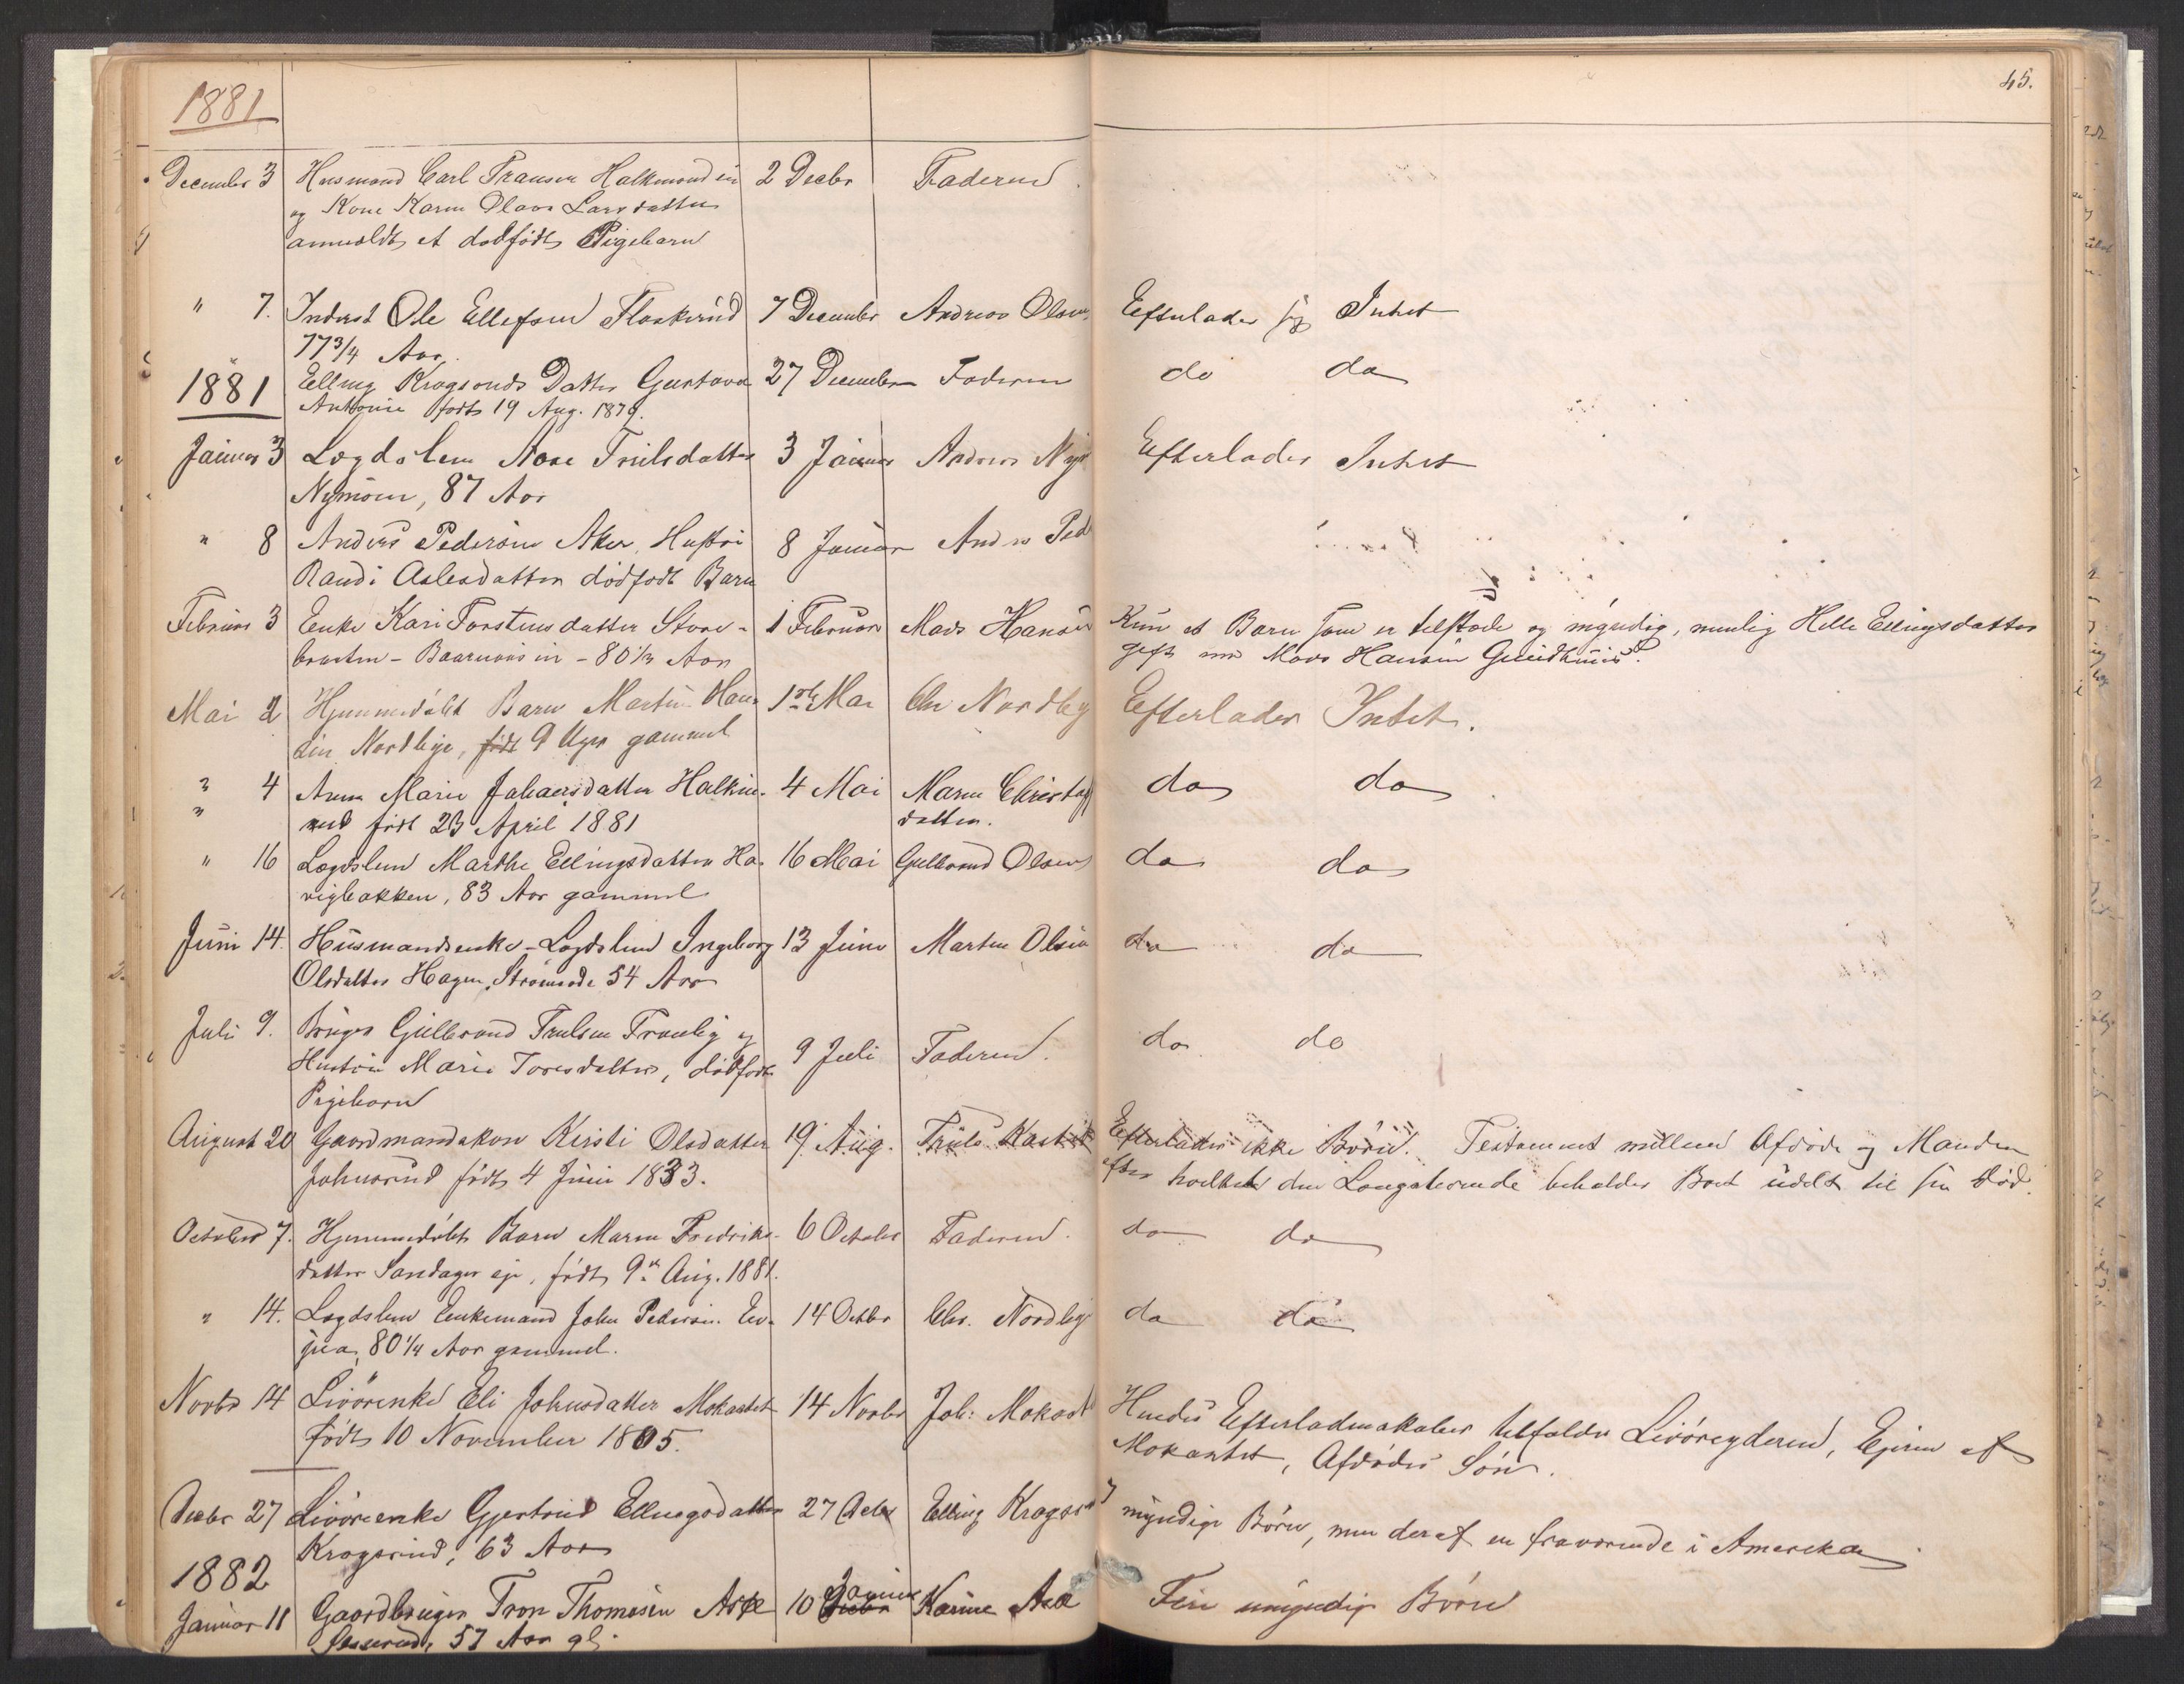 1881
45.
December 3 Husmand Carl Fransen Halkinrudein 2 Decbr Faderen
og Kone Karen Olava Larsdatter
anmeldt et dødfødt Pigebarn
" 7. Inderst Ole Ellefsen Flaskerud 7 December Andreas Olsen Efterlader sig Intet
77 3/4 Aar
1881 Elling Kragsruds Datter Gustava 27 December Faderen do do
Antonie født 19 Aug. 1879.
Januar 3 Lægdslem Aase Trulsdatter 3 Januar Anders Efterlader Intet
Nymoen, 87 Aar
" 8 Anders Pedersen Aker, Hustru 8 Januar Anders Ped
Randi Aslesdatter dødfødt Barn
Februar 3 Enke Kari Torstensdatter Store- 1 Februar Mads Hansen Kun et Barn som er tilstede og myndig, nemlig Helle Ellingsdatter
braaten - - 80 1/2 Aar gift m Mads Hansen
Mai 2 Hjemmedøbt Barn Martin Han- 1ste Mai Chr Nordby Efterlader Intet.
sen Nordbye, født 9 Uger gammel
" 4 Anna Marie Johansdatter Halkin- 4 Mai Maren Christoff do do
" rud født 23 April 1881 datter.
" 16 Lægdslem Marthe Ellingsdatter Ha- 16 Mai Gulbrand Olsen do do
vigbakken, 83 Aar gammel
Juni 14. Husmandsenke - Lægdslem Ingeborg 13 Juni Martin Olsen do do
Olsdatter Hagen, Strømsode 54 Aar
Juli 9. Bruger Gulbrand Trulsen Tranby og
Hustru Marie Toresdatter, dødfødt 9 Juli Faderen. do do
Pigebarn
August 20 Gaardmandskone Kirsti Olsdatter 19 Aug. Truls Efterlader ikke Børn. Testament mellem Afdøde og Manden
Johnsrud født 4 Juni 1833. efter hvilket den Længstlevende beholder Boet udelt til sin Død.
October 7. Hjemmedøbt Barn Maren Fredriks- 6 October Faderen. do do
datter Sandager eje, født 9de Aug. 1881.
" 14. Lægdslem Enkemand John Pedersen. 14 Octbr Chr. Nordby do do
80 1/4 Aar gammel.
Novbr 14 Livørenke Eli Johnsdatter Mokastet 14 Novbr Joh: Mokast Hendes Efterladenskaber tilfalder Livørsyderen, Ejeren af
født 10 November 1805. Mokastet, Afdødes Søn.
Decbr 27 Livørenke Gjertrud Ellingsdatter 27 Decbr Elling Kragsr 7 myndige Børn, men deraf en fraværende i Amerika
Kragsrud, 63 Aar
1882
Januar 11 Gaardbruger Tron Thomasen Aske 10 Januar Karine Aas Fire umyndige Børn
57 Aar gl.